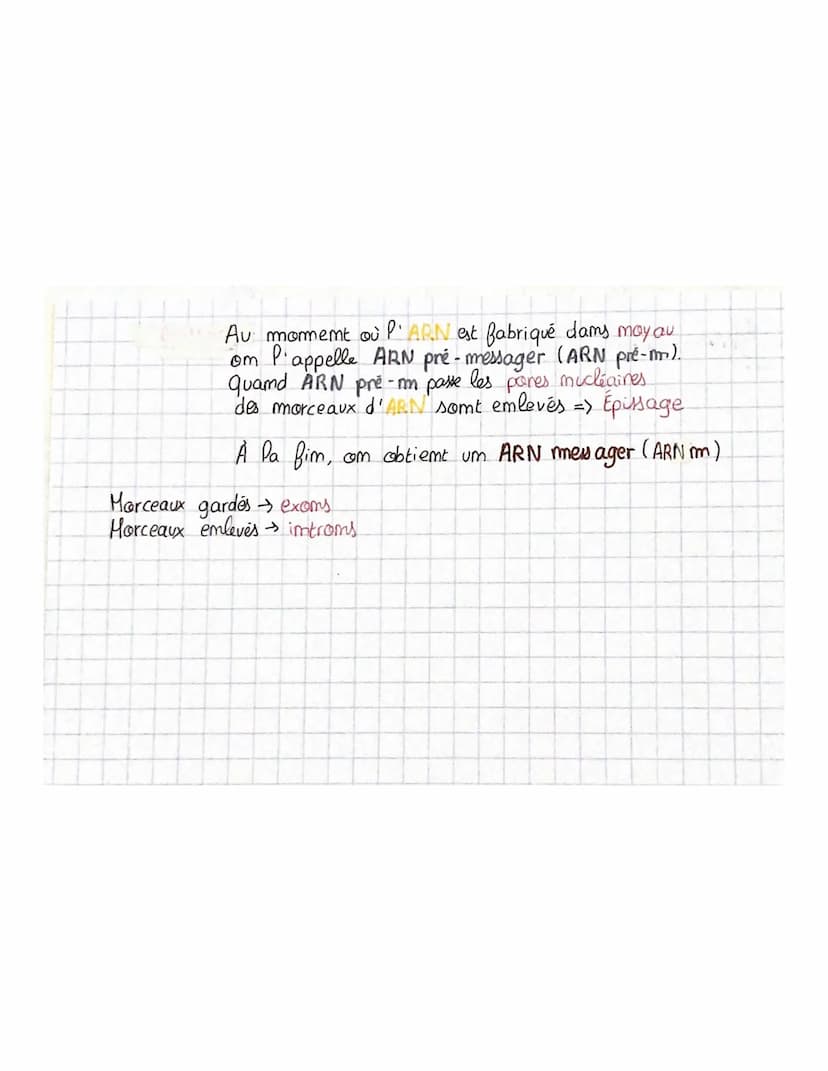 Au moment où l'ARN est fabriqué dans noyau
on l'appelle ARN pré-messager (ARN pré-m).
Quand ARN pré-m passe les pores nucléaires
des morceaux d'ARN sont enlevés => Épissage
À la fin, on obtient un ARN messager (ARN m)
Morceaux gardés → exons
Morceaux enlevés → introns